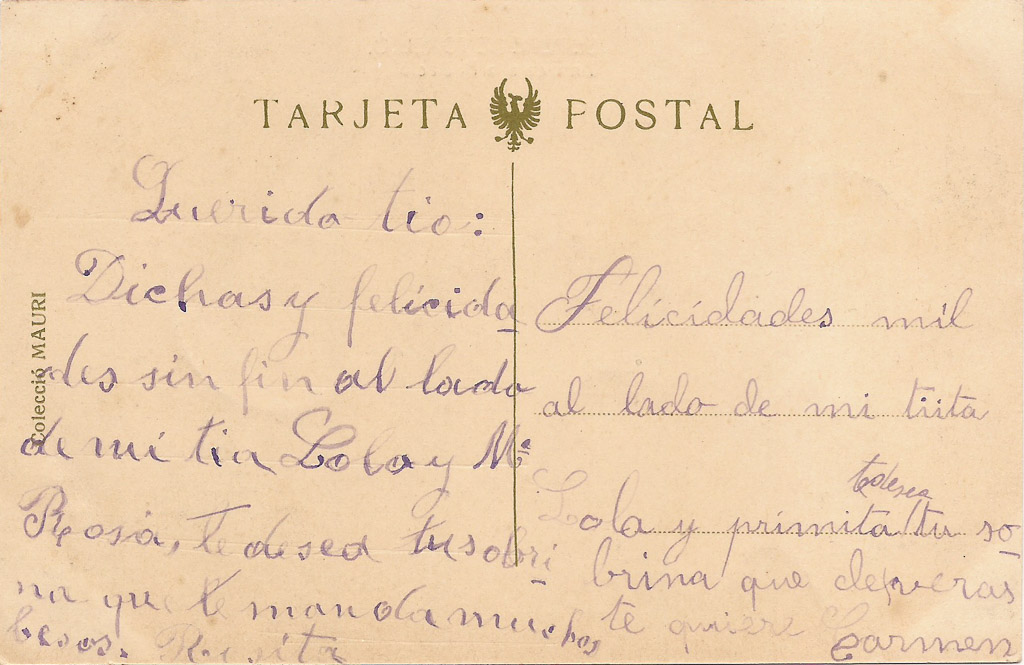 TARJETA POSTAL
Colecció MAURI
Querido tio:
Dichas y felicida
des sin fin al lado
de mi tia Lola y Mª
Rosa, te desea tu sobri
na que te manda muchos
besos. Rosita
Felicidades mil
al lado de mi tiita
te desea
Lola y primita tu so
brina que deveras
te quiere Carmen